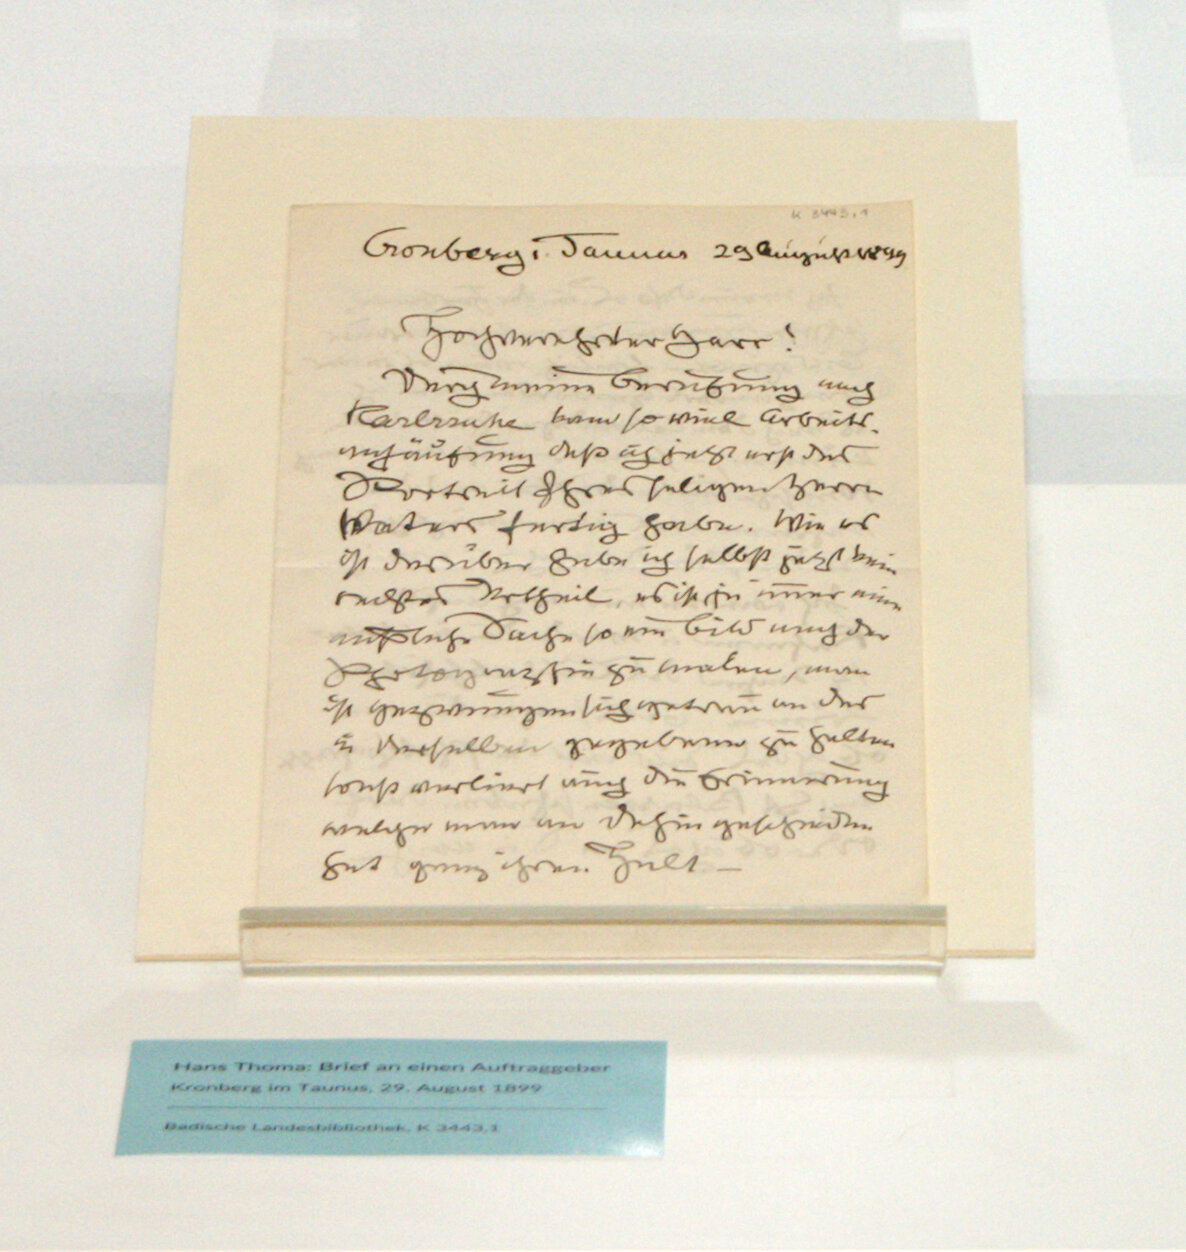 K 3443,1
Cronberg i. Taunus 29 August 1899
Hochverehrter Herr!
Durch meine Berufung nach
Karlsruhe kam so viel Arbeits-
anhäufung daß ich jetzt erst das
Portrait Ihres seligen Herrn
Vaters fertig habe. Wie es
ist darüber habe ich selbst jetzt kein
rechtes Urtheil, es ist ja immer eine
mißliche Sache so ein Bild nach der
Photographie zu malen, man
ist gezwungen sich getreu an das
in derselben gegebene zu halten
sonst verliert auch die Erinnerung
welche man an Dahingeschiedene
hat ganz ihren Halt —
Hans Thoma: Brief an einen Auftraggeber
Kronberg im Taunus, 29. August 1899
Badische Landesbibliothek, K 3443,1